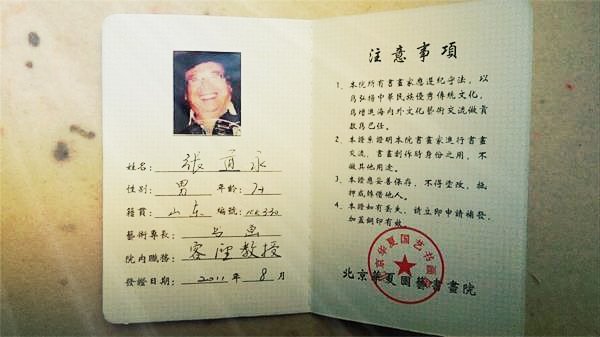 姓名: 张 永
性别: 男 年龄:
籍貫: 山东 編號:
藝術專長: 画
院內職務: 客座教授
發證日期: 2011 年 8 月
注意事項
1、本院所有書畫家應遵紀守法，以
爲弘揚中華民族優秀傳統文化，
爲增進海内外文化藝術交流做貢
獻爲己任。
2、本證系證明本院書畫家進行書畫
交流、書畫創作時身份之用，不
做其他用途。
3、本證應妥善保存，不得塗改、抵
押或轉借他人。
4、本證如有丟失，請立即申請補發，
加蓋鋼印有效。
北京华夏国艺书画院
北京華夏國藝書畫院